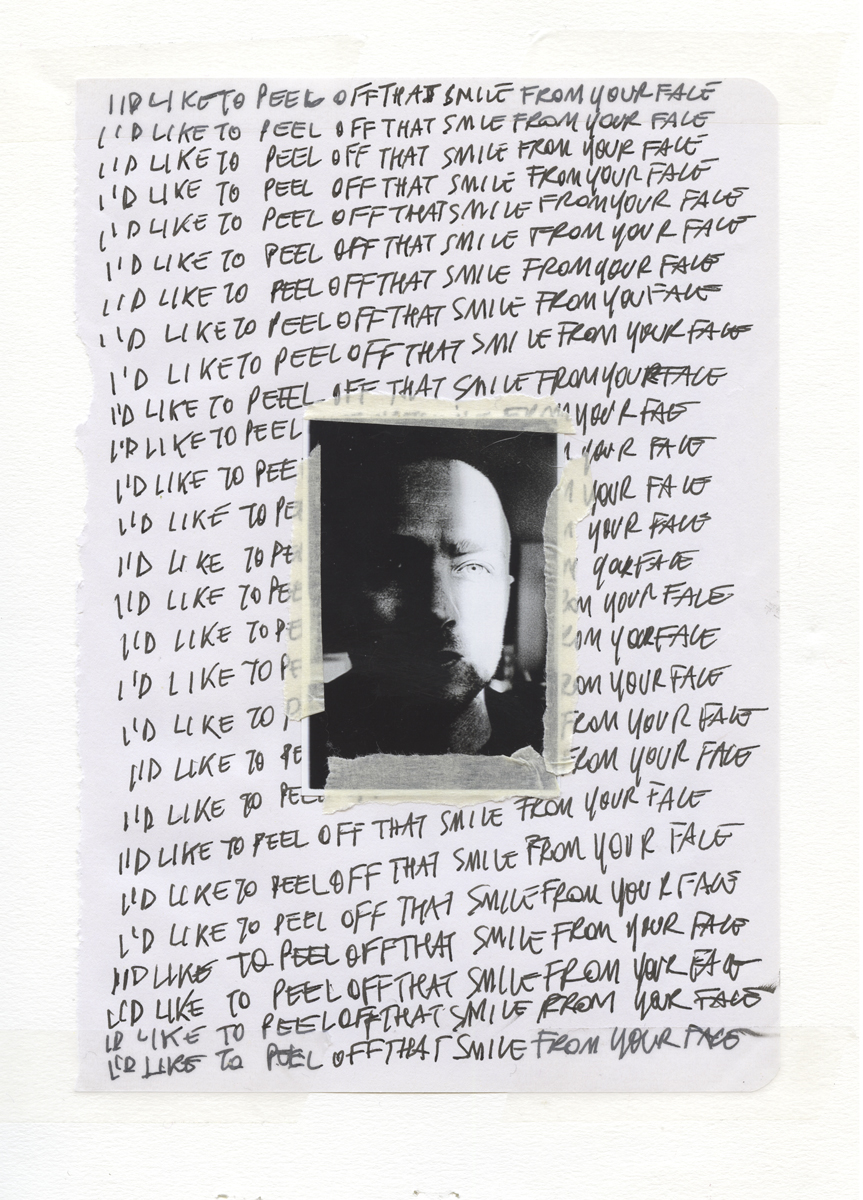 I'D LIKE TO PEEL OFF THAT SMILE FROM YOUR FACE
I'D LIKE TO PEEL OFF THAT SMLE FROM YOUR FACE
I'D LIKE TO PEEL OFF THAT SMILE FROM YOUR FACE
I'D LIKE TO PEEL OFF THAT SMILE FROM YOUR FACE
I'D LIKE TO PEEL OFF THAT SMILE FROM YOUR FACE
I'D LIKE TO PEEL OFF THAT SMILE FROM YOUR FACE
I'D LIKE TO PEEL OFF THAT SMILE FROM YOUR FACE
I'D LIKE TO PEEL OFF THAT SMILE FROM YOUR FACE
I'D LIKE TO PEEL OFF THAT SMILE FROM YOUR FACE
I'D LIKE TO PEEL OFF THAT SMILE FROM YOUR FACE
I'D LIKE TO PEEL YOUR FACE
I'D LIKE TO PEE YOUR FACE
I'D LIKE TO PE YOUR FACE
I'D LIKE TO PE YOUR FACE
I'D LIKE TO PE YOUR FACE
I'D LIKE TO PE OM YOUR FACE
I'D LIKE TO PE OM YOUR FACE
I'D LIKE TO P OM YOUR FACE
I'D LIKE TO PE FROM YOUR FACE
I'D LIKE TO PEEL FROM YOUR FACE
I'D LIKE TO PEEL OFF THAT SMILE FROM YOUR FACE
I'D LIKE TO PEEL OFF THAT SMILE FROM YOUR FACE
I'D LIKE TO PEEL OFF THAT SMILE FROM YOUR FACE
I'D LIKE TO PEEL OFF THAT SMILE FROM YOUR FACE
I'D LIKE TO PEEL OFF THAT SMILE FROM YOUR FACE
I'D LIKE TO PEEL OFF THAT SMILE FROM YOUR FACE
I'D LIKE TO PEEL OFF THAT SMILE FROM YOUR FACE